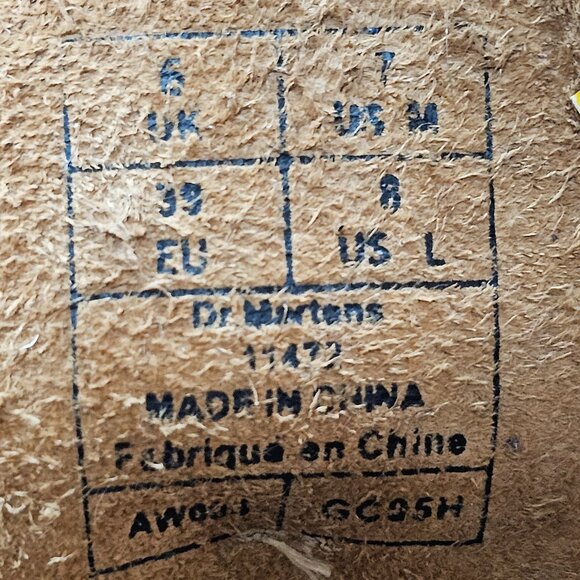 6 UK
7 US M
39 EU
8 US L
Dr. Martens
11473
MADE IN CHINA
Fabriqué en Chine
GC95H